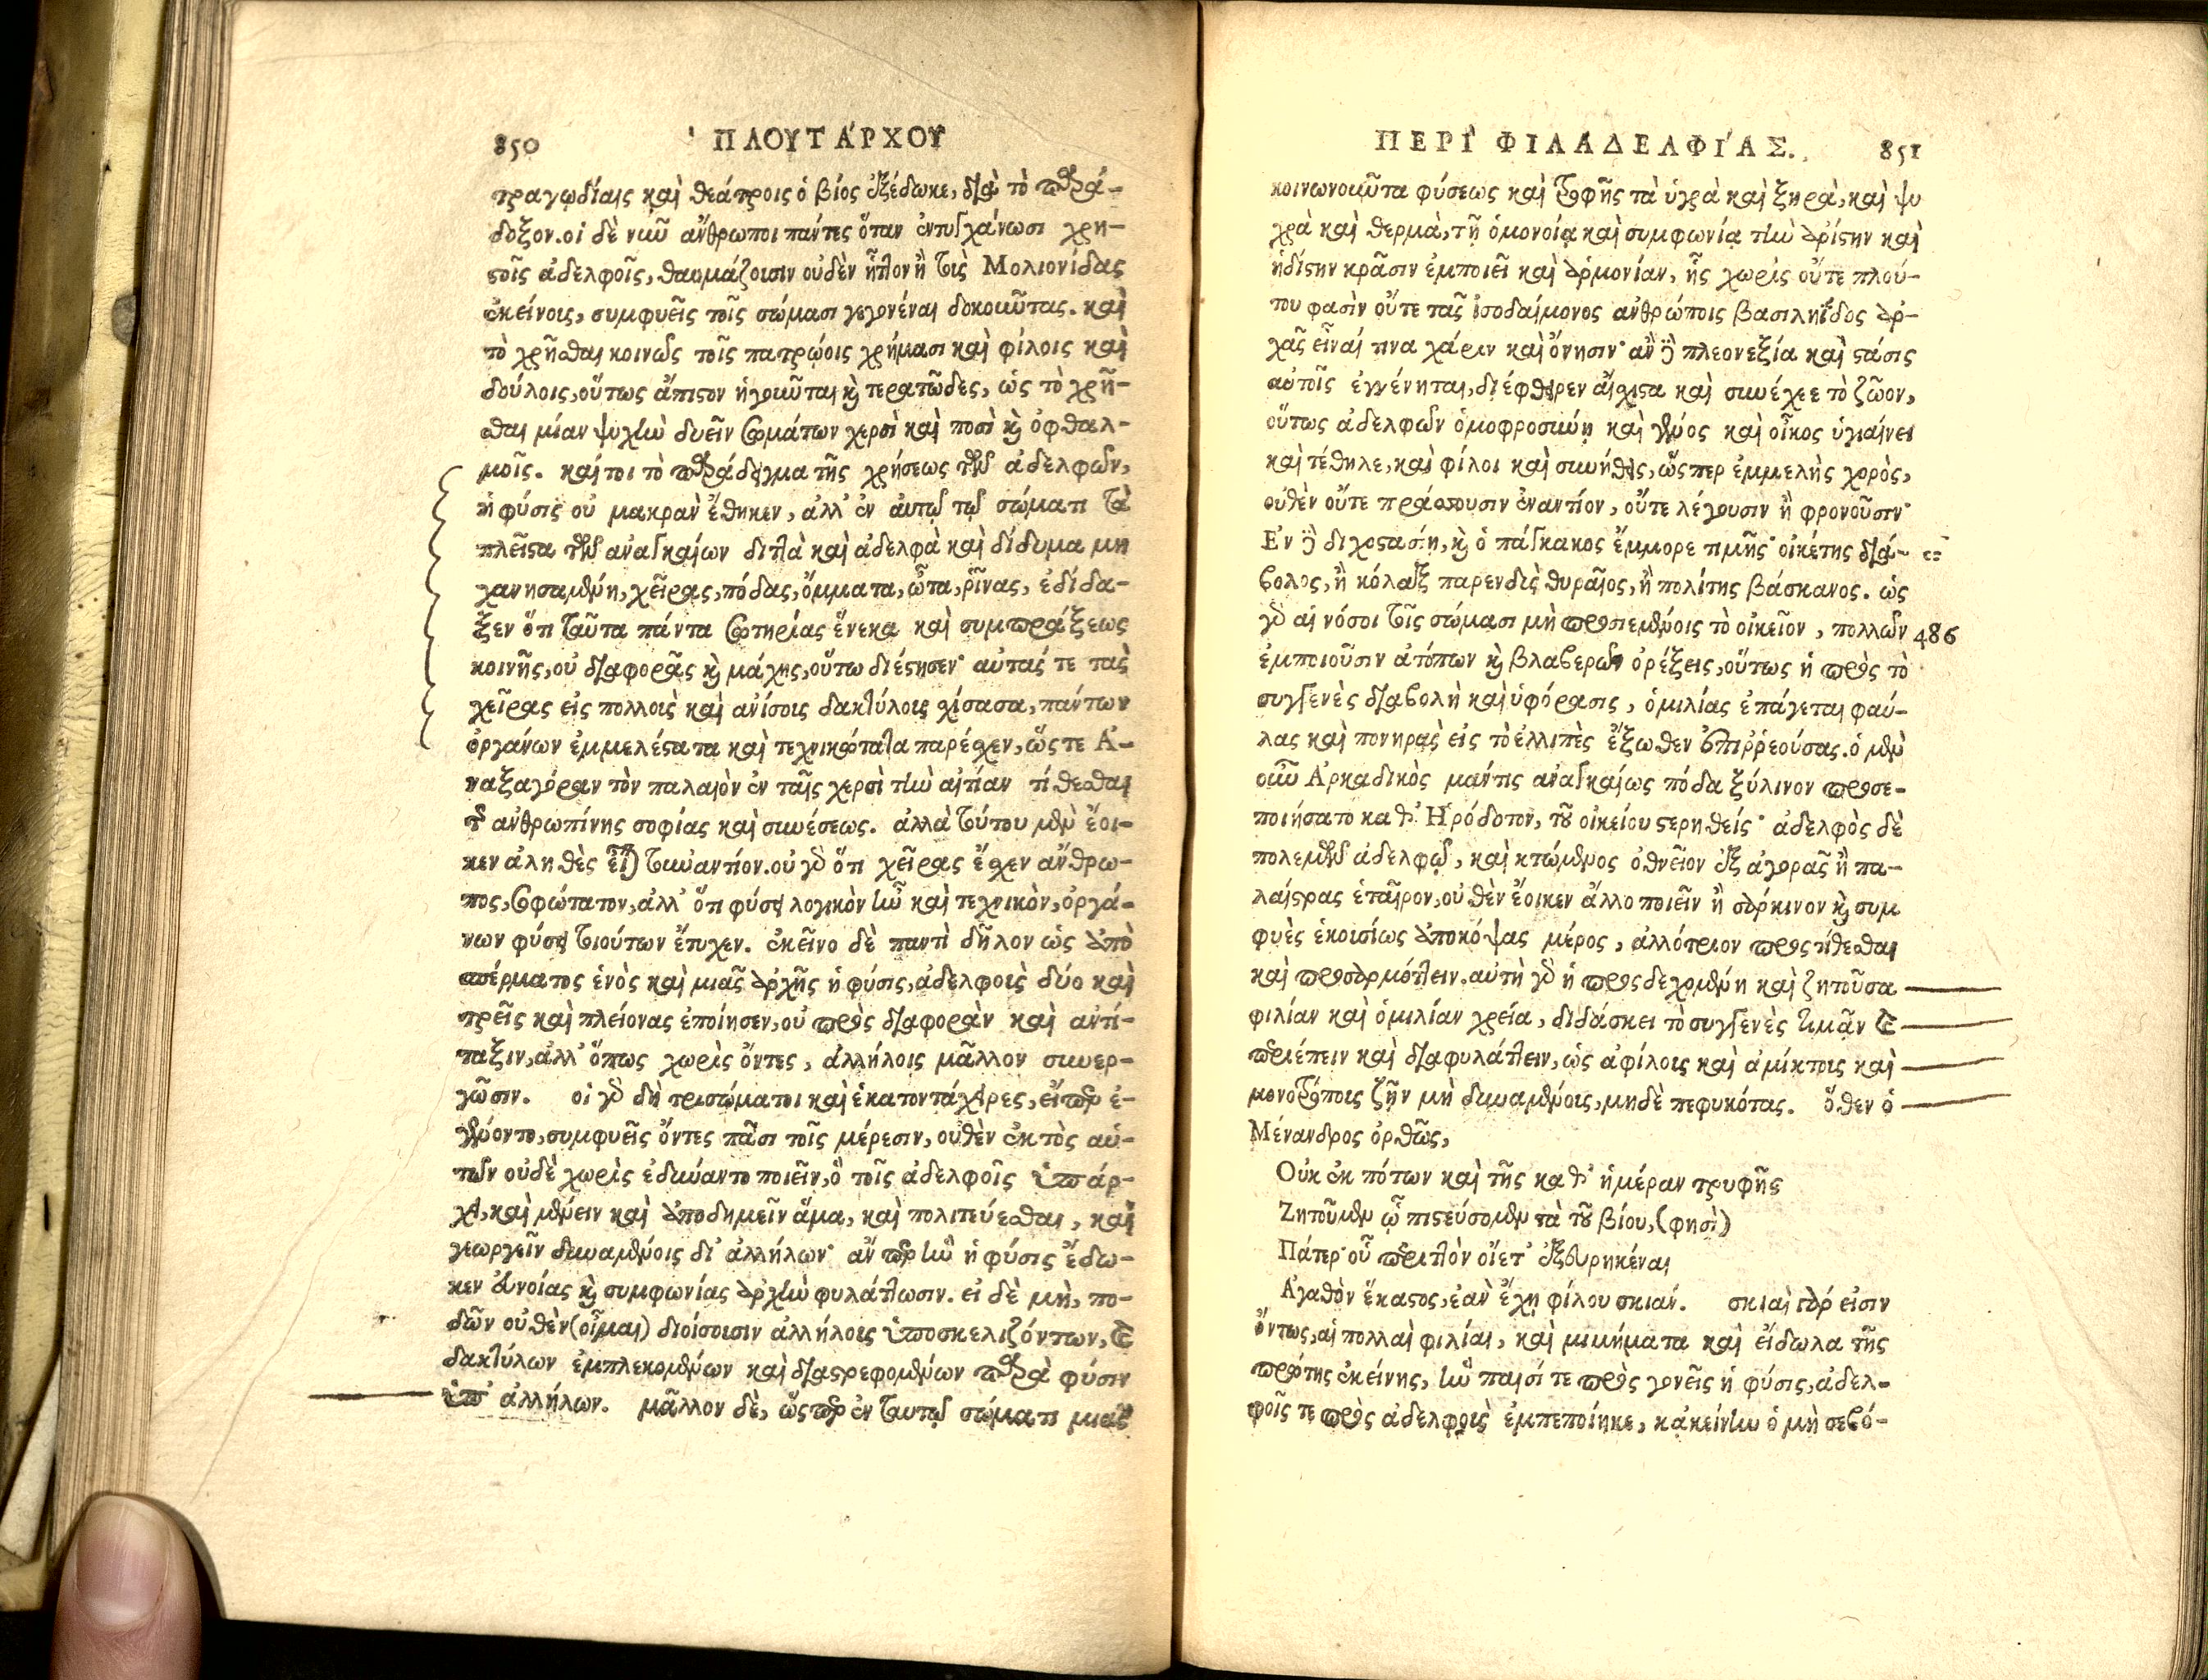 850 ΠΛΟΥΤΑΡΧΟΥ
τραγῳδίαις καὶ θεάτροις ὁ βίος ἐξέδωκε, διὰ τὸ παρά-
δοξον. οἱ δὲ νῦν ἄνθρωποι πάντες ὅταν ἐντυγχάνωσι χρη-
στοῖς ἀδελφοῖς, θαυμάζουσιν οὐδὲν ἧττον ἢ τοὺς Μολιονίδας
ἐκείνους, συμφυεῖς τοῖς σώμασι γεγονέναι δοκοῦντας. καὶ
τὸ χρῆσθαι κοινῶς τοῖς πατρῴοις χρήμασι καὶ φίλοις καὶ
δούλοις, οὕτως ἄπιστον ἡγοῦνται καὶ τερατῶδες, ὡς τὸ χρῆ-
σθαι μίαν ψυχὴν δυεῖν σωμάτων χερσὶ καὶ ποσὶ καὶ ὀφθαλ-
μοῖς. καίτοι τὸ παράδειγμα τῆς χρήσεως τῶν ἀδελφῶν,
ἡ φύσις οὐ μακρὰν ἔθηκεν, ἀλλ' ἐν αὐτῷ τῷ σώματι τὰ
πλεῖστα τῶν ἀναγκαίων διττὰ καὶ ἀδελφὰ καὶ δίδυμα μη
χανησαμένη, χεῖρας, πόδας, ὄμματα, ὦτα, ῥῖνας, ἐδίδα-
ξεν ὅτι ταῦτα πάντα σωτηρίας ἕνεκα καὶ συμπράξεως
κοινῆς, οὐ διαφορᾶς καὶ μάχης, οὕτω διέστησεν· αὐτάς τε τὰς
χεῖρας εἰς πολλοὺς καὶ ἀνίσους δακτύλους σχίσασα, πάντων
ὀργάνων ἐμμελέστατα καὶ τεχνικώτατα παρέσχεν, ὥστε Ἀ-
ναξαγόραν τὸν παλαιὸν ἐν ταῖς χερσὶ τὴν αἰτίαν τίθεσθαι
τῆς ἀνθρωπίνης σοφίας καὶ συνέσεως. ἀλλὰ τούτου μὲν ἔοι-
κεν ἀληθὲς εἶναι τοὐναντίον. οὐ γὰρ ὅτι χεῖρας ἔσχεν ἄνθρω-
πος, σοφώτατον, ἀλλ' ὅτι φύσει λογικὸν ἦν καὶ τεχνικὸν, ὀργά-
νων φύσει τοιούτων ἔτυχεν. ἐκεῖνο δὲ παντὶ δῆλον ὡς ἀπὸ
σπέρματος ἑνὸς καὶ μιᾶς ἀρχῆς ἡ φύσις, ἀδελφοὺς δύο καὶ
τρεῖς καὶ πλείονας ἐποίησεν, οὐ πρὸς διαφορὰν καὶ ἀντί-
ταξιν, ἀλλ' ὅπως χωρὶς ὄντες, ἀλλήλοις μᾶλλον συνερ-
γῶσιν. οἱ γὰρ δὴ τρισώματοι καὶ ἑκατοντάχειρες, εἴπερ ἐ-
γένοντο, συμφυεῖς ὄντες πᾶσι τοῖς μέρεσιν, οὐθὲν ἐκτὸς αὑ-
τῶν οὐδὲ χωρὶς ἐδύναντο ποιεῖν, ὃ τοῖς ἀδελφοῖς ὑπάρ-
χει, καὶ μένειν καὶ ἀποδημεῖν ἅμα, καὶ πολιτεύεσθαι, καὶ
γεωργεῖν δυναμένοις δι' ἀλλήλων· ἄν περ ἣν ἡ φύσις ἔδω-
κεν εὐνοίας καὶ συμφωνίας ἀρχὴν φυλάττωσιν. εἰ δὲ μὴ, πο-
δῶν οὐθὲν (οἶμαι) διοίσουσιν ἀλλήλους ὑποσκελιζόντων, καὶ
δακτύλων ἐμπλεκομένων καὶ διαστρεφομένων παρὰ φύσιν
ὑπ' ἀλλήλων. μᾶλλον δὲ, ὥσπερ ἐν ταὐτῷ σώματι μιᾶς
ΠΕΡῚ ΦΙΛΑΔΕΛΦΊΑΣ. 851
κοινωνοῦντα φύσεως καὶ τροφῆς τὰ ὑγρὰ καὶ ξηρὰ, καὶ ψυ
χρὰ καὶ θερμὰ, τῇ ὁμονοίᾳ καὶ συμφωνίᾳ τὴν ἀρίστην καὶ
ἡδίστην κρᾶσιν ἐμποιεῖ καὶ ἁρμονίαν, ἧς χωρὶς οὔτε πλού-
του φασὶν οὔτε τᾶς ἰσοδαίμονος ἀνθρώποις βασιληΐδος ἀρ-
χᾶς εἶναί τινα χάριν καὶ ὄνησιν· ἂν δὲ πλεονεξία καὶ στάσις
αὐτοῖς ἐγγένηται, διέφθειρεν αἴσχιστα καὶ συνέχεε τὸ ζῶον,
οὕτως ἀδελφῶν ὁμοφροσύνῃ καὶ γένος καὶ οἶκος ὑγιαίνει
καὶ τέθηλε, καὶ φίλοι καὶ συνήθεις, ὥσπερ ἐμμελὴς χορὸς,
οὐθὲν οὔτε πράσσουσιν ἐναντίον, οὔτε λέγουσιν ἢ φρονοῦσιν·
Ἐν δὲ διχοστασίῃ, καὶ ὁ πάγκακος ἔμμορε τιμῆς· οἰκέτης διά-
βολος, ἢ κόλαξ παρενδὺς θυραῖος, ἢ πολίτης βάσκανος. ὡς
γὰρ αἱ νόσοι τοῖς σώμασι μὴ προσιεμένοις τὸ οἰκεῖον, πολλῶν 486
ἐμποιοῦσιν ἀτόπων καὶ βλαβερῶν ὀρέξεις, οὕτως ἡ πρὸς τὸ
συγγενὲς διαβολὴ καὶ ὑφόρασις, ὁμιλίας ἐπάγεται φαύ-
λας καὶ πονηρὰς εἰς τὸ ἐλλιπὲς ἔξωθεν ἐπιῤῥεούσας. ὁ μὲν
οὖν Ἀρκαδικὸς μάντις ἀναγκαίως πόδα ξύλινον προσε-
ποιήσατο καθ' Ἡρόδοτον, τοῦ οἰκείου στερηθείς· ἀδελφὸς δὲ
πολεμῶν ἀδελφῷ, καὶ κτώμενος ὀθνεῖον ἐξ ἀγορᾶς ἢ πα-
λαίστρας ἑταῖρον, οὐθὲν ἔοικεν ἄλλο ποιεῖν ἢ σάρκινον καὶ συμ
φυὲς ἑκουσίως ἀποκόψας μέρος, ἀλλότριον προστίθεσθαι
καὶ προσαρμόττειν. αὐτὴ γὰρ ἡ προσδεχομένη καὶ ζητοῦσα
φιλίαν καὶ ὁμιλίαν χρεία, διδάσκει τὸ συγγενὲς τιμᾷν καὶ
περιέπειν καὶ διαφυλάττειν, ὡς ἀφίλους καὶ ἀμίκτους καὶ
μονοτρόπους ζῆν μὴ δυναμένους, μηδὲ πεφυκότας. ὅθεν ὁ
Μένανδρος ὀρθῶς,
Οὐκ ἐκ πότων καὶ τῆς καθ' ἡμέραν τρυφῆς
Ζητοῦμεν ᾧ πιστεύσομεν τὰ τοῦ βίου, (φησὶ)
Πάτερ· οὗ περιττὸν οἴετ' ἐξευρηκέναι
Ἀγαθὸν ἕκαστος, ἐὰν ἔχῃ φίλου σκιάν. σκιαὶ γάρ εἰσιν
ὄντως, αἱ πολλαὶ φιλίαι, καὶ μιμήματα καὶ εἴδωλα τῆς
πρώτης ἐκείνης, ἣν παισί τε πρὸς γονεῖς ἡ φύσις, ἀδελ-
φοῖς τε πρὸς ἀδελφοὺς ἐμπεποίηκε, κἀκείνην ὁ μὴ σεβό-